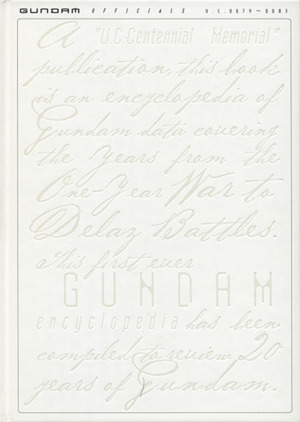 GUNDAM OFFICIALS U.C.0079~0083
A "U.C.Centennial Memorial"
publication, this book
is an encyclopedia of
Gundam data covering
the Years from the
One-Year War to
Delaz Battles.
This first ever
GUNDAM
encyclopedia has been
compiled to review 20
years of Gundam.